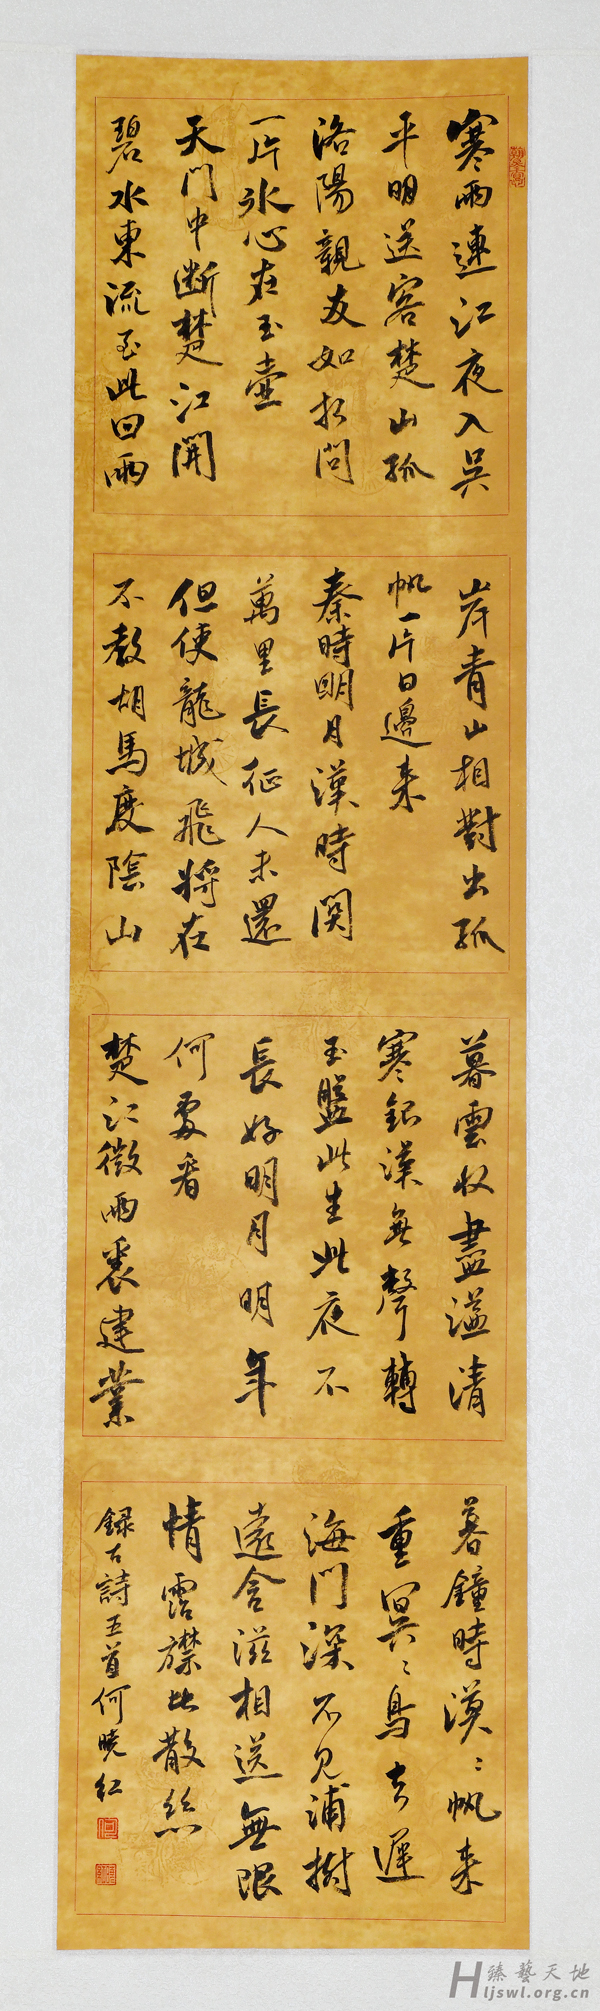 寒雨連江夜入吳
平明送客楚山孤
洛陽親友如相問
一片冰心在玉壺
天門中斷楚江開
碧水東流至此回兩
岸青山相對出孤
帆一片日邊来
秦時明月漢時関
萬里長征人未還
但使龍城飛將在
不教胡馬度陰山
暮雲收盡溢清
寒銀漢無聲轉
玉盤此生此夜不
長好明月明年
何處看
楚江微雨裏建業
暮鐘時漠〻帆来
重冥〻鳥去遲
海門深不見浦樹
遠含滋相送無限
情霑襟比散絲
録古詩五首何曉紅
臻藝天地
Hljswl.org.cn